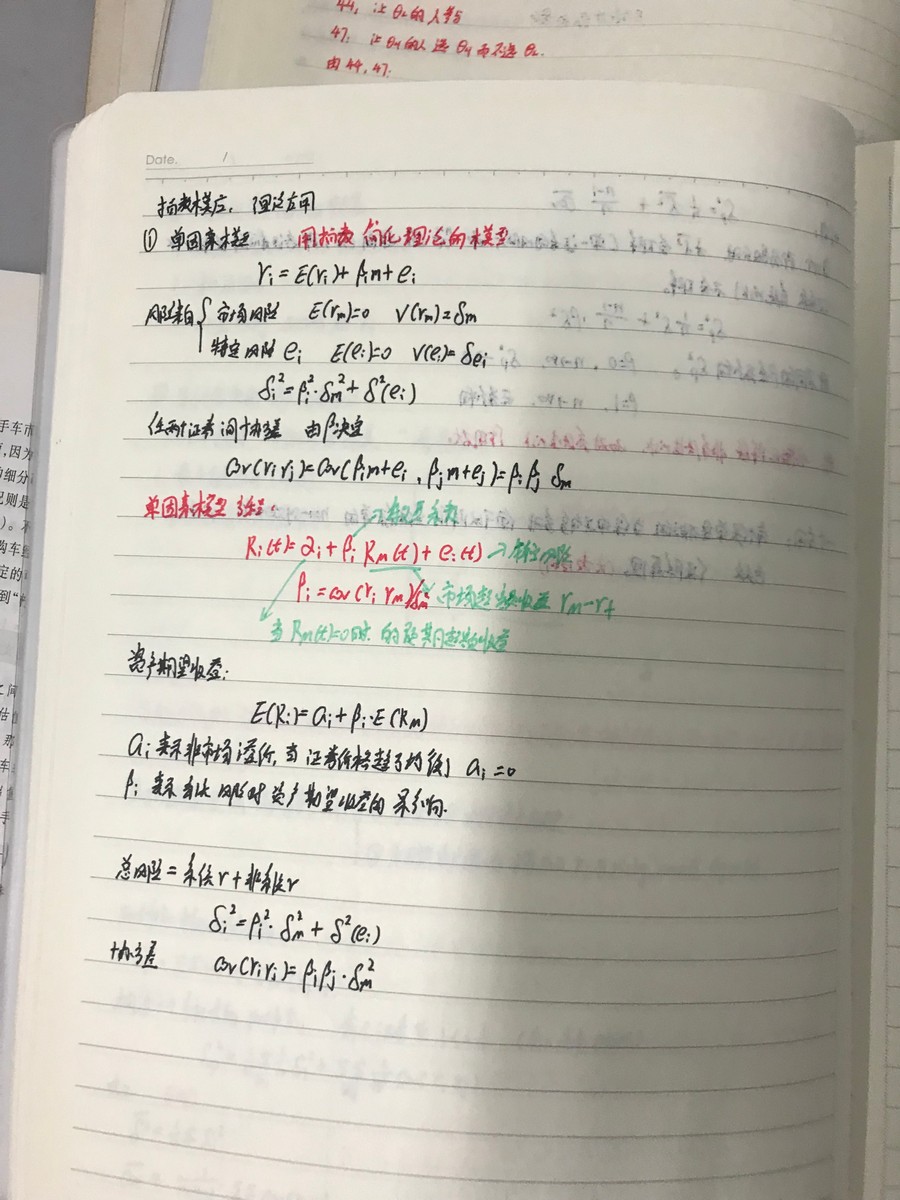 44, 让θL的人参与
47: 让θH的人选θH而不选θL.
由44,47:
Date. /
指数模型, 理论应用
① 单因素模型 用指数简化理论的模型
ri = E(ri)+ βim+ei
风险来自 市场风险 E(rm)=0 V(rm)=δm
特定风险 ei E(ei)=0 V(ei)=δei
δi²=βi²·δm²+δ²(ei)
任两个证券间协方差 由β决定
cov(ri rj)=cov(βim+ei , βjm+ej)=βiβj δm
单因素模型
→敏感系数
Ri(t)= αi + βi Rm(t)+ ei(t) →特定风险
βi=cov(ri rm)/δm² 市场超额收益 rm-rf
当Rm(t)=0时 的预期超额收益
资产期望收益:
E(Ri)=ai+βi·E(Rm)
ai表示非市场溢价, 当证券价格趋于均衡 ai=0
βi表示 风险对资产期望收益的影响.
总风险=系统r+非系统r
δi²=βi²·δm²+δ²(ei)
协方差 cov(ri ri)=βiβj·δm²
手车市
,因为
的细分
则是
)。不
购车
定的
到“
之间
估
那
车
手